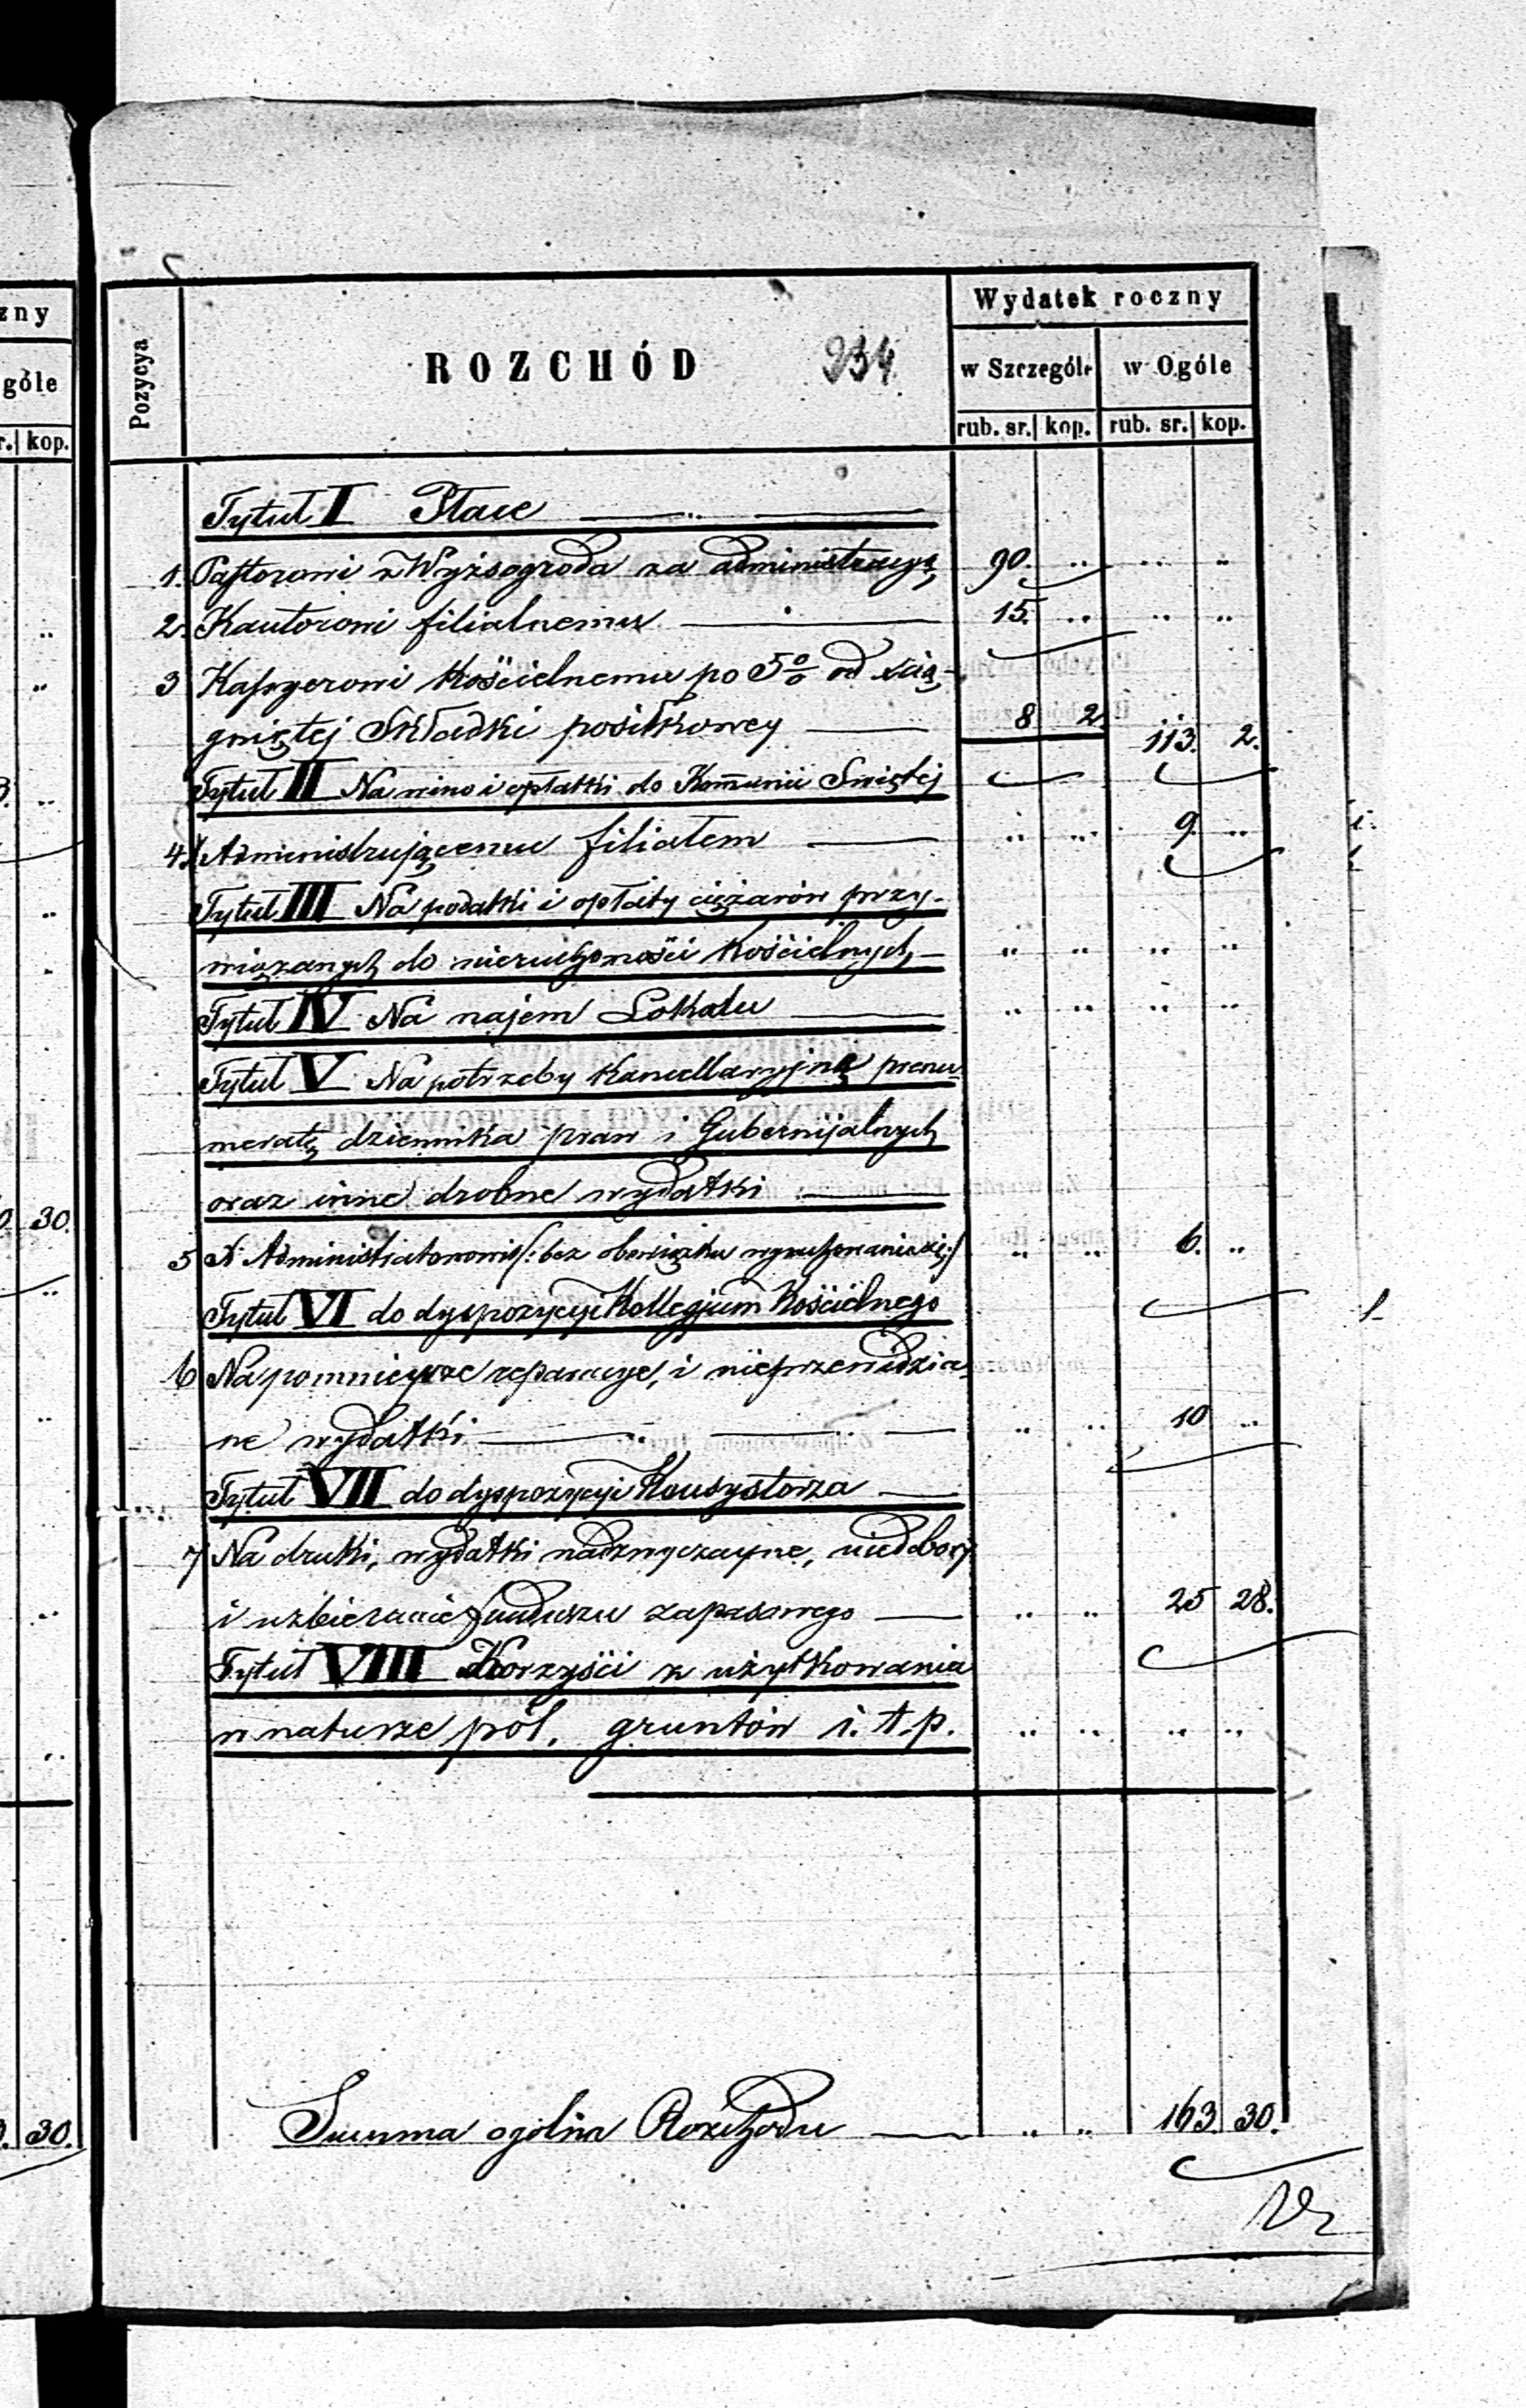 zny
góle
r. kop.
30.
30.
Pozycya
ROZCHÓD
234
Wydatek roczny
w Szczególe
w Ogóle
rub. sr. kop. rub. sr. kop.
Tytuł I Płace
1. Pastorowi z Wyżsogroda za administracyą 90. " " "
2. Kantorowi filialnemu 15. " " "
3 Kassyerowi Kościelnemu po 5% od ścią-
gniętej Składki posiłkowey 8 2. 113. 2.
Tytuł II Na wino i opłatki do Kommunii Swiętej
4. Administrującemu filiałem " " 9. "
Tytuł III Na podatki i opłaty ciężarów przy-
wiązanych do nieruchomości Kościelnych " " " "
Tytuł IV Na najem Lokalu " " " "
Tytuł V Na potrzeby Kancellaryjną prenu-
meratę dziennika praw i Gubernijalnych
oraz inne drobne wydatki
5 Administratorowi /: bez obowiązku wyrachowania się :/ " " 6. "
Tytuł VI do dyspozycyi Kollegjum Kościelnego
6 Na pomniejsze reparacye, i nieprzewidzia-
ne wydatki " " 10 "
Tytuł VII do dyspozycyi Konsystorza
7 Na druki, wydatki nadzwyczayne, niedobory
i uzbieranie funduszu zapasowego " " 25 28.
Tytuł VIII Korzyści z użytkowania
w naturze pól, gruntów i. t. p. " " " "
Summa ogólna Rozchodu " " 163. 30.